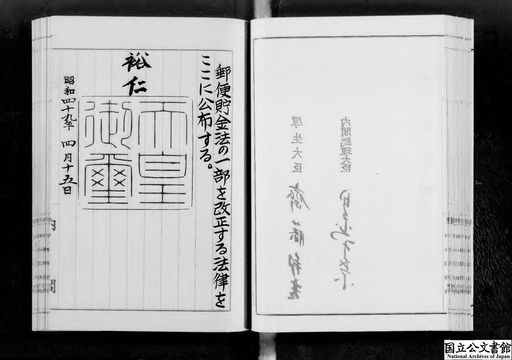 郵便貯金法の一部を改正する法律を
ここに公布する。
裕仁
天皇
御璽
昭和四十九年四月十五日
内閣
内閣総理大臣
厚生大臣
国立公文書館
National Archives of Japan